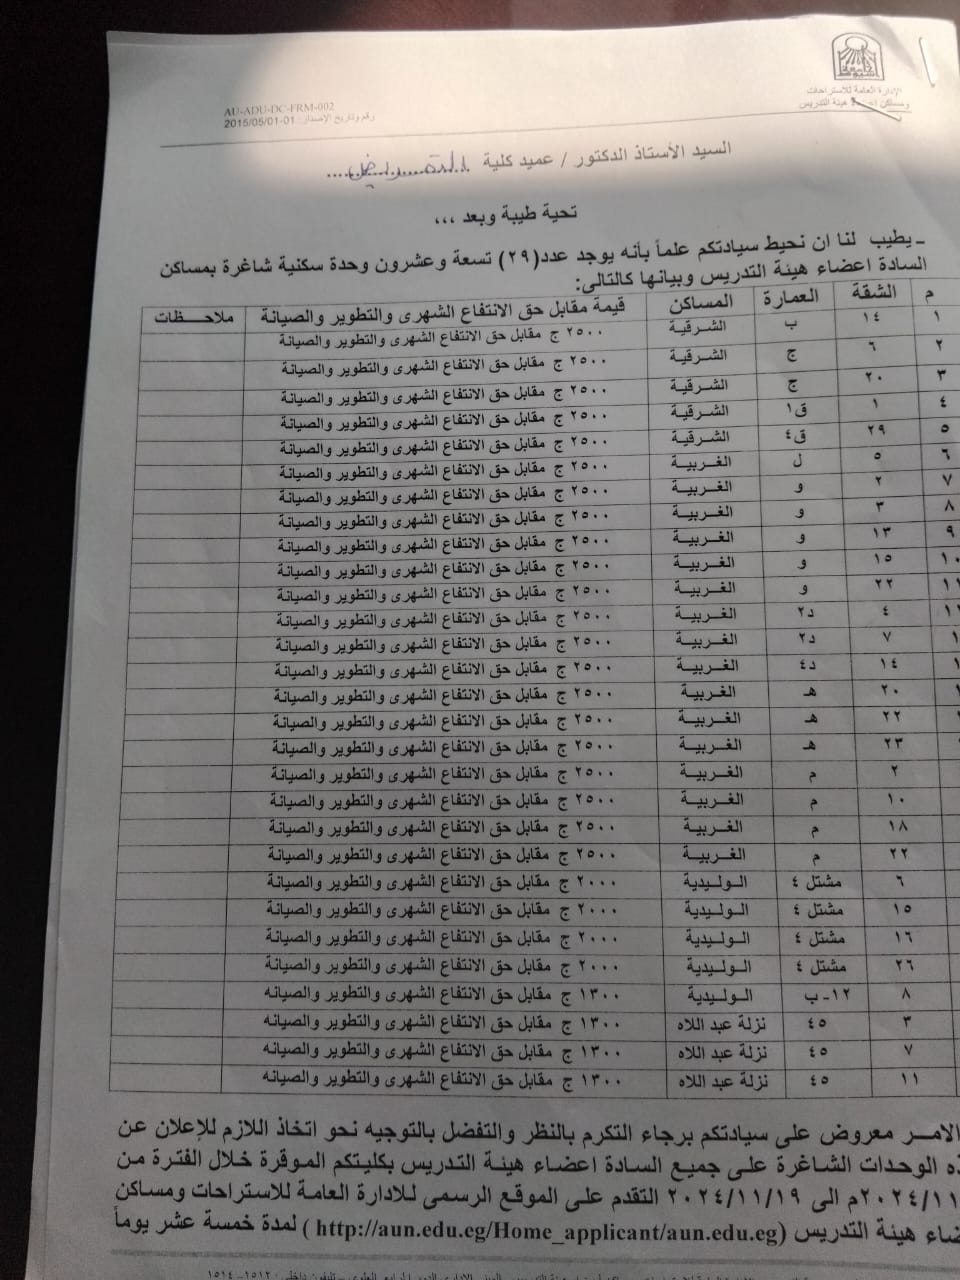 جامعة أسيوط
الإدارة العامة للاستراحات
ومساكن اعضاء هيئة التدريس
AU-ADU-DC-FRM-002
رقم وتاريخ الإصدار: 01-2015/05/01
السيد الأستاذ الدكتور / عميد كلية
تحية طيبة وبعد ،،،
ـ يطيب لنا ان نحيط سيادتكم علماً بأنه يوجد عدد(٢٩) تسعة وعشرون وحدة سكنية شاغرة بمساكن
السادة اعضاء هيئة التدريس وبيانها كالتالى:
م الشقة العمارة المساكن قيمة مقابل حق الانتفاع الشهرى والتطوير والصيانة ملاحـظات
١ ١٤ ب الشرقية ٢٥٠٠ ج مقابل حق الانتفاع الشهرى والتطوير والصيانة
٢ ٦ ج الشرقية ٢٥٠٠ ج مقابل حق الانتفاع الشهرى والتطوير والصيانة
٣ ٢٠ ج الشرقية ٢٥٠٠ ج مقابل حق الانتفاع الشهرى والتطوير والصيانة
٤ ١ ق١ الشرقية ٢٥٠٠ ج مقابل حق الانتفاع الشهرى والتطوير والصيانة
٥ ٢٩ ق٤ الشرقية ٢٥٠٠ ج مقابل حق الانتفاع الشهرى والتطوير والصيانة
٦ ٥ ل الغـربيـة ٢٥٠٠ ج مقابل حق الانتفاع الشهرى والتطوير والصيانة
٧ ٢ و الغـربيـة ٢٥٠٠ ج مقابل حق الانتفاع الشهرى والتطوير والصيانة
٨ ٣ و الغـربيـة ٢٥٠٠ ج مقابل حق الانتفاع الشهرى والتطوير والصيانة
٩ ١٣ و الغـربيـة ٢٥٠٠ ج مقابل حق الانتفاع الشهرى والتطوير والصيانة
١٠ ١٥ و الغـربيـة ٢٥٠٠ ج مقابل حق الانتفاع الشهرى والتطوير والصيانة
٢٢ و الغـربيـة ٢٥٠٠ ج مقابل حق الانتفاع الشهرى والتطوير والصيانة
٤ د٢ الغـربيـة ٢٥٠٠ ج مقابل حق الانتفاع الشهرى والتطوير والصيانة
٧ د٢ الغـربيـة ٢٥٠٠ ج مقابل حق الانتفاع الشهرى والتطوير والصيانة
١٤ د٤ الغـربيـة ٢٥٠٠ ج مقابل حق الانتفاع الشهرى والتطوير والصيانة
٢٠ هـ الغـربيـة ٢٥٠٠ ج مقابل حق الانتفاع الشهرى والتطوير والصيانة
٢٢ هـ الغـربيـة ٢٥٠٠ ج مقابل حق الانتفاع الشهرى والتطوير والصيانة
٢٣ هـ الغـربيـة ٢٥٠٠ ج مقابل حق الانتفاع الشهرى والتطوير والصيانة
٢ م الغـربيـة ٢٥٠٠ ج مقابل حق الانتفاع الشهرى والتطوير والصيانة
١٠ م الغـربيـة ٢٥٠٠ ج مقابل حق الانتفاع الشهرى والتطوير والصيانة
١٨ م الغـربيـة ٢٥٠٠ ج مقابل حق الانتفاع الشهرى والتطوير والصيانة
٢٢ م الغـربيـة ٢٥٠٠ ج مقابل حق الانتفاع الشهرى والتطوير والصيانة
٦ مشتل ٤ الـولـيدية ٢٠٠٠ ج مقابل حق الانتفاع الشهرى والتطوير والصيانة
١٥ مشتل ٤ الـولـيدية ٢٠٠٠ ج مقابل حق الانتفاع الشهرى والتطوير والصيانة
١٦ مشتل ٤ الـولـيدية ٢٠٠٠ ج مقابل حق الانتفاع الشهرى والتطوير والصيانة
٢٦ مشتل ٤ الـولـيدية ٢٠٠٠ ج مقابل حق الانتفاع الشهرى والتطوير والصيانة
٨ ١٢- ب الـولـيدية ١٣٠٠ ج مقابل حق الانتفاع الشهرى والتطوير والصيانه
٣ ٤٥ نزلة عبد اللاه ١٣٠٠ ج مقابل حق الانتفاع الشهرى والتطوير والصيانه
٧ ٤٥ نزلة عبد اللاه ١٣٠٠ ج مقابل حق الانتفاع الشهرى والتطوير والصيانه
١١ ٤٥ نزلة عبد اللاه ١٣٠٠ ج مقابل حق الانتفاع الشهرى والتطوير والصيانه
الامـر معروض على سيادتكم برجاء التكرم بالنظر والتفضل بالتوجيه نحو اتخاذ اللازم للإعلان عن
الوحدات الشاغرة على جميع السادة اعضاء هيئة التدريس بكليتكم الموقرة خلال الفترة من
٢٠٢٤/١١م الى ٢٠٢٤/١١/١٩ التقدم على الموقع الرسمى للادارة العامة للاستراحات ومساكن
هيئة التدريس (http://aun.edu.eg/Home_applicant/aun.edu.eg ) لمدة خمسة عشر يوماً